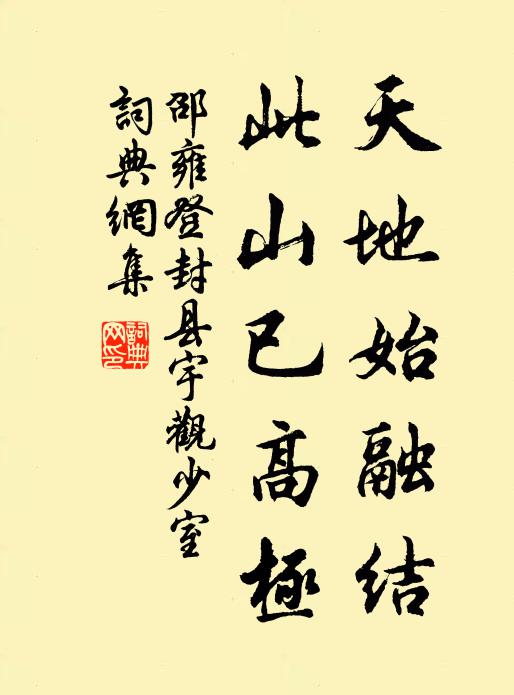 天地始融结
此山已高極
邵雍登封县宇觀少室
詞典網集
詞典网印